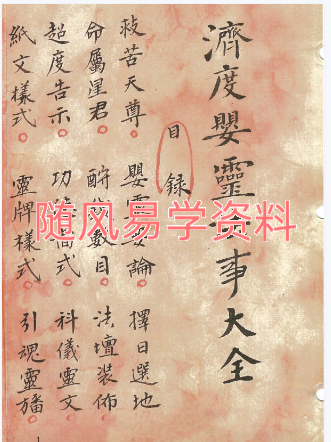 濟度嬰靈事大全
目錄
救苦天尊。嬰靈論。擇日選地
命屬星君。數目。法壇裝佈
超度告示。功式。科儀靈文
紙文樣式。靈牌樣式。引魂靈旛
随风易学资料